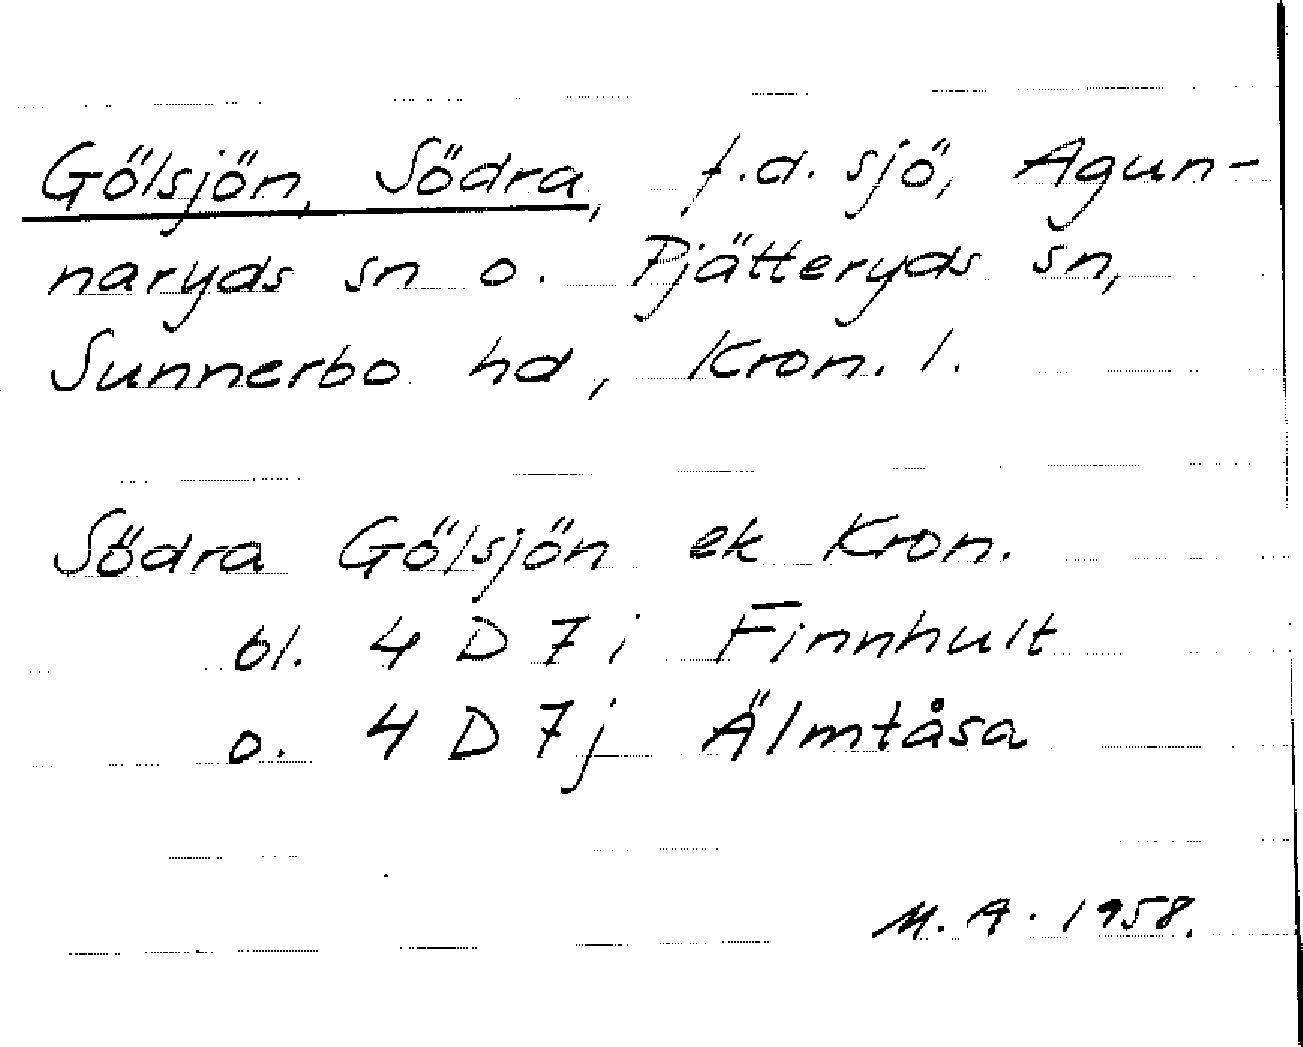 Gölsjön, Södra, f.d. sjö, Agun-
naryds sn o. Pjätteryds sn,
Sunnerbo hd, Kron. l.
Södra Gölsjön ek Kron.
bl. 4 D 7 i Finnhult
o. 4 D 7 j Älmtåsa
M. A. 1958.